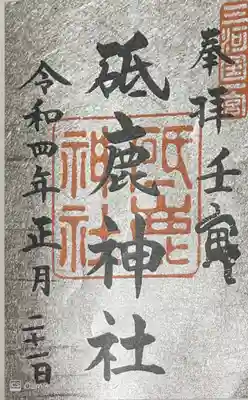 三河国一宮
奉拝 壬寅
砥鹿神社
砥鹿神社
令和四年 正月 二十一日